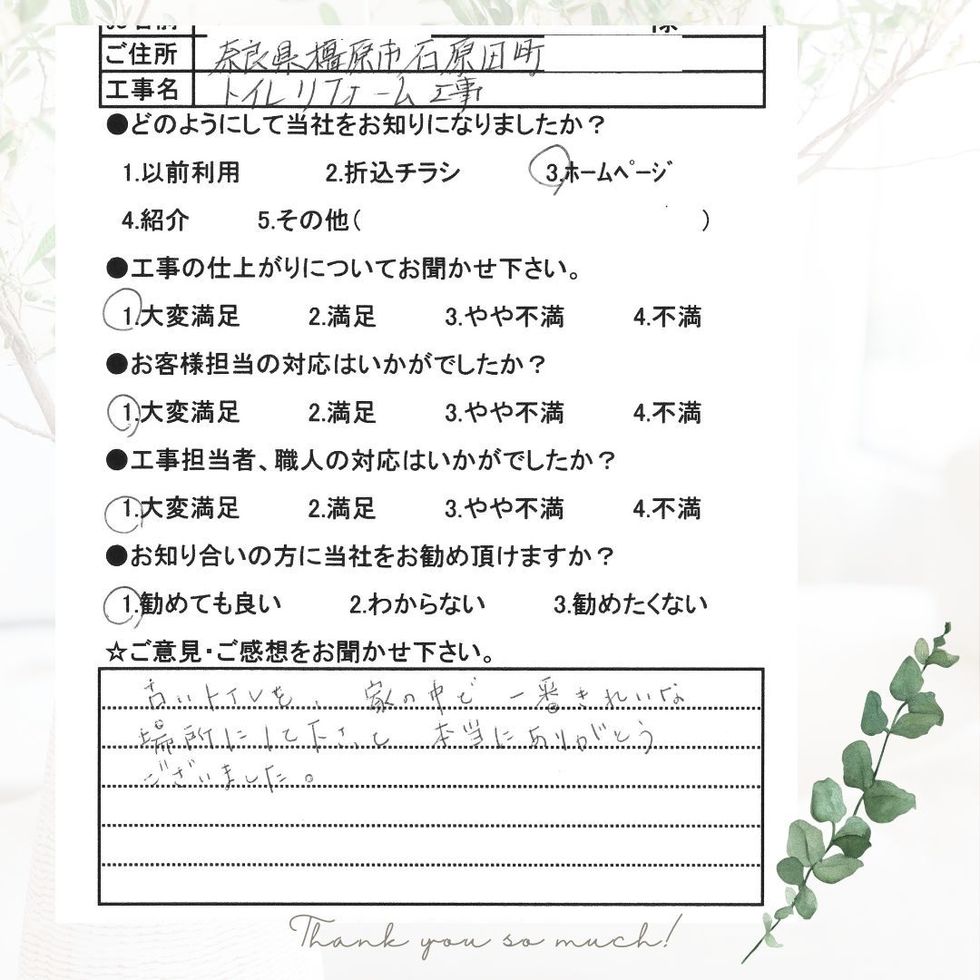 お名前 様
ご住所 奈良県橿原市石原田町
工事名 トイレリフォーム工事
●どのようにして当社をお知りになりましたか？
1.以前利用 2.折込チラシ 3.ホームページ
4.紹介 5.その他( )
●工事の仕上がりについてお聞かせ下さい。
1.大変満足 2.満足 3.やや不満 4.不満
●お客様担当の対応はいかがでしたか？
1.大変満足 2.満足 3.やや不満 4.不満
●工事担当者、職人の対応はいかがでしたか？
1.大変満足 2.満足 3.やや不満 4.不満
●お知り合いの方に当社をお勧め頂けますか？
1.勧めても良い 2.わからない 3.勧めたくない
☆ご意見・ご感想をお聞かせ下さい。
古いトイレを、家の中で一番きれいな
場所にして下さって 本当にありがとう
ございました。
Thank you so much!